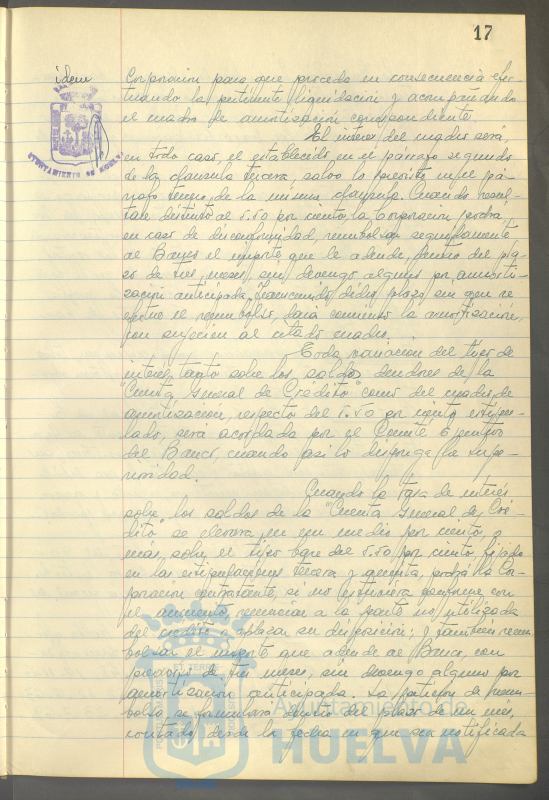 17
idem
Corporación para que proceda en consecuencia efec-
tuando la pertinente liquidación y acompañando
el cuadro de amortización correspondiente.
El interés del cuadro será,
en todo caso, el establecido en el párrafo segundo
de la cláusula tercera, salvo lo previsto en el pá-
rrafo tercero, de la misma cláusula. Cuando resul-
tare distinto al 5.50 por ciento, la Corporación podrá,
en caso de disconformidad, reembolsar seguidamente
al Banco el importe que le adeude, dentro del pla-
zo de tres meses, sin devengo alguno por amorti-
zación anticipada. Transcurrido dicho plazo sin que se
efectúe el reembolso, dará comienzo la amortización,
con sujeción al citado cuadro.
Toda variación del tipo de
interés, tanto sobre los saldos deudores de la
"Cuenta General de Crédito" como del cuadro de
amortización, respecto del 5.50 por ciento estipu-
lado, será acordada por el Comité Ejecutivo
del Banco, cuando así lo disponga la Supe-
rioridad.
Cuando la tasa de interés
sobre los saldos de la "Cuenta General de Cré-
dito" se elevara en un medio por ciento, o
más, sobre el tipo base del 5.50 por ciento, fijado
en las estipulaciones tercera y quinta, podrá la Cor-
poración contratante, si no estuviera conforme con
el aumento, renunciar a la parte no utilizada
del crédito o aplazar su disposición; y también reem-
bolsar el importe que adeude al Banco, con
preaviso de tres meses, sin devengo alguno por
amortización anticipada. La petición de reem-
bolso, se formulará dentro del plazo de un mes,
contado desde la fecha en que sea notificada
AYUNTAMIENTO DE HUELVA
Ayuntamiento de
HUELVA